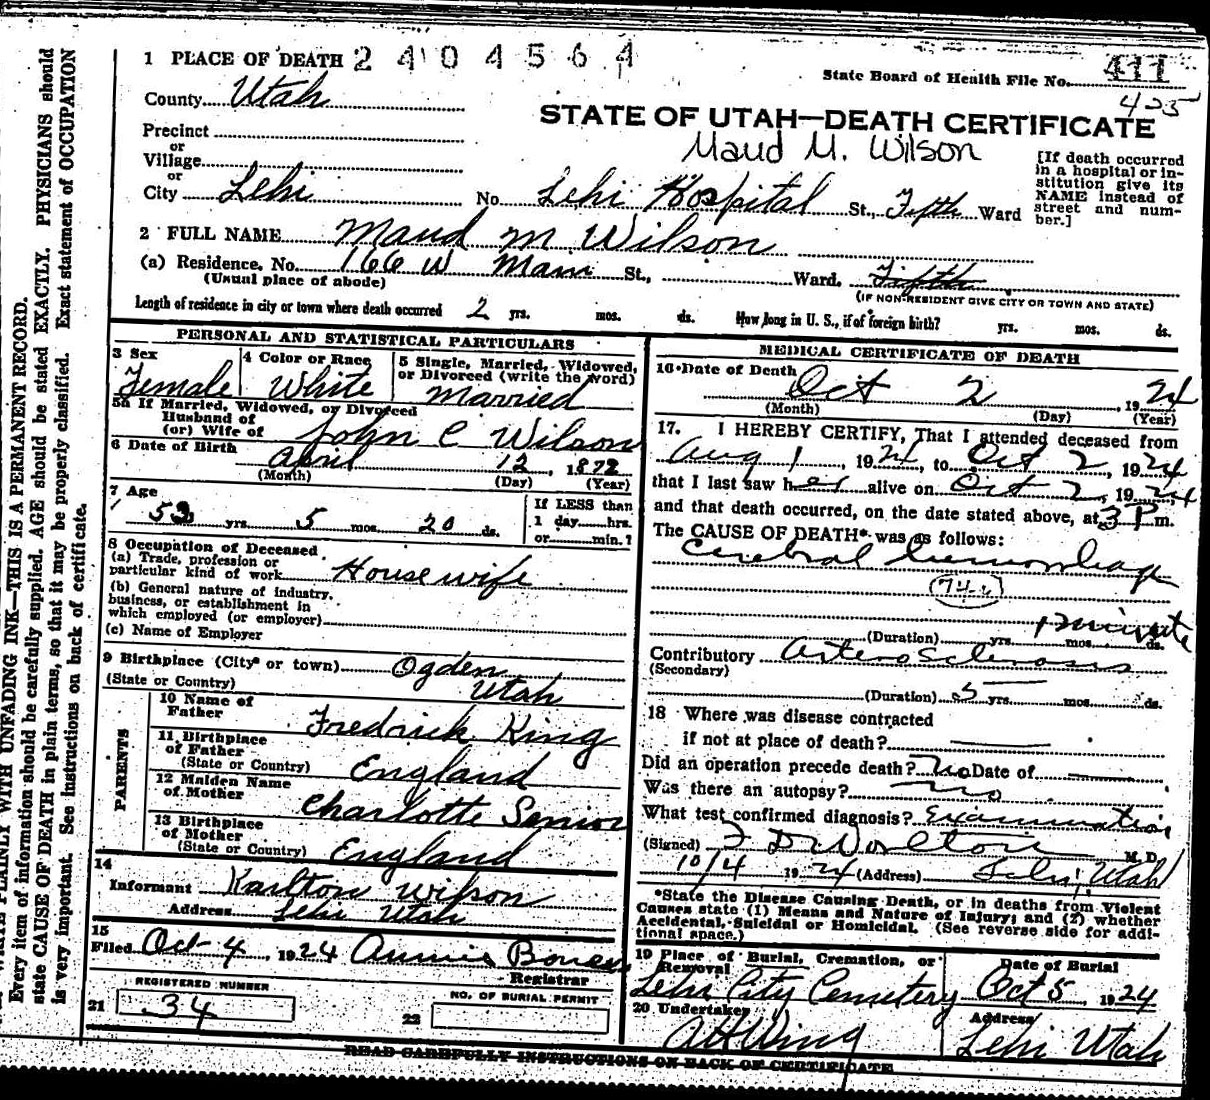 WRITE PLAINLY WITH UNFADING INK—THIS IS A PERMANENT RECORD.
Every item of information should be carefully supplied. AGE should be stated EXACTLY. PHYSICIANS should
state CAUSE OF DEATH in plain terms, so that it may be properly classified. Exact statement of OCCUPATION
is very important. See instructions on back of certificate.
1 PLACE OF DEATH 2404564
State Board of Health File No. 411
425
County Utah
STATE OF UTAH—DEATH CERTIFICATE
Precinct
Maud M. Wilson
or
Village
or
City Lehi No. Lehi Hospital St., Fifth Ward
[If death occurred
in a hospital or in-
stitution give its
NAME instead of
street and num-
ber.]
2 FULL NAME Maud M Wilson
(a) Residence. No. 166 W Main St., Ward. Fifth
(Usual place of abode) (IF NON-RESIDENT GIVE CITY OR TOWN AND STATE)
Length of residence in city or town where death occurred 2 yrs. mos. ds. How long in U. S., if of foreign birth? yrs. mos. ds.
PERSONAL AND STATISTICAL PARTICULARS
3 Sex 4 Color or Race 5 Single, Married, Widowed,
or Divorced (write the word)
Female White Married
5a If Married, Widowed, or Divorced
Husband of
(or) Wife of John C Wilson
6 Date of Birth April 12, 1872
(Month) (Day) (Year)
7 Age If LESS than
yrs. 5 mos. 20 ds. 1 day hrs.
or min.?
8 Occupation of Deceased
(a) Trade, profession or
particular kind of work Housewife
(b) General nature of industry,
business, or establishment in
which employed (or employer)
(c) Name of Employer
9 Birthplace (City or town) Ogden
(State or Country) Utah
PARENTS
10 Name of
Father Fredrick King
11 Birthplace
of Father
(State or Country) England
12 Maiden Name
of Mother Charlotte Senior
13 Birthplace
of Mother
(State or Country) England
14
Informant Karlton Wilson
Address Lehi Utah
15
Filed Oct 4, 1924 Annie Bowen
Registrar
REGISTERED NUMBER NO. OF BURIAL PERMIT
21 34 22
MEDICAL CERTIFICATE OF DEATH
16 Date of Death
Oct 2, 1924
(Month) (Day) (Year)
17. I HEREBY CERTIFY, That I attended deceased from
Aug 1, 1924, to Oct 2, 1924
that I last saw her alive on Oct 2, 1924
and that death occurred, on the date stated above, at 3 P m.
The CAUSE OF DEATH* was as follows:
Cerebral hemorrhage
(Duration) yrs. mos. ds.
Contributory Arterosclerosis
(Secondary)
(Duration) 5 yrs. mos. ds.
18 Where was disease contracted
if not at place of death?
Did an operation precede death? No Date of
Was there an autopsy? No
What test confirmed diagnosis? Examination
(Signed) M. D.
10/4 1924 (Address) Lehi, Utah
*State the Disease Causing Death, or in deaths from Violent
Causes state (1) Means and Nature of Injury; and (2) whether
Accidental, Suicidal or Homicidal. (See reverse side for addi-
tional space.)
19 Place of Burial, Cremation, or Date of Burial
Removal
Lehi City Cemetery Oct 5, 1924
20 Undertaker Address
A H Wing Lehi Utah
READ CAREFULLY INSTRUCTIONS ON BACK OF CERTIFICATE